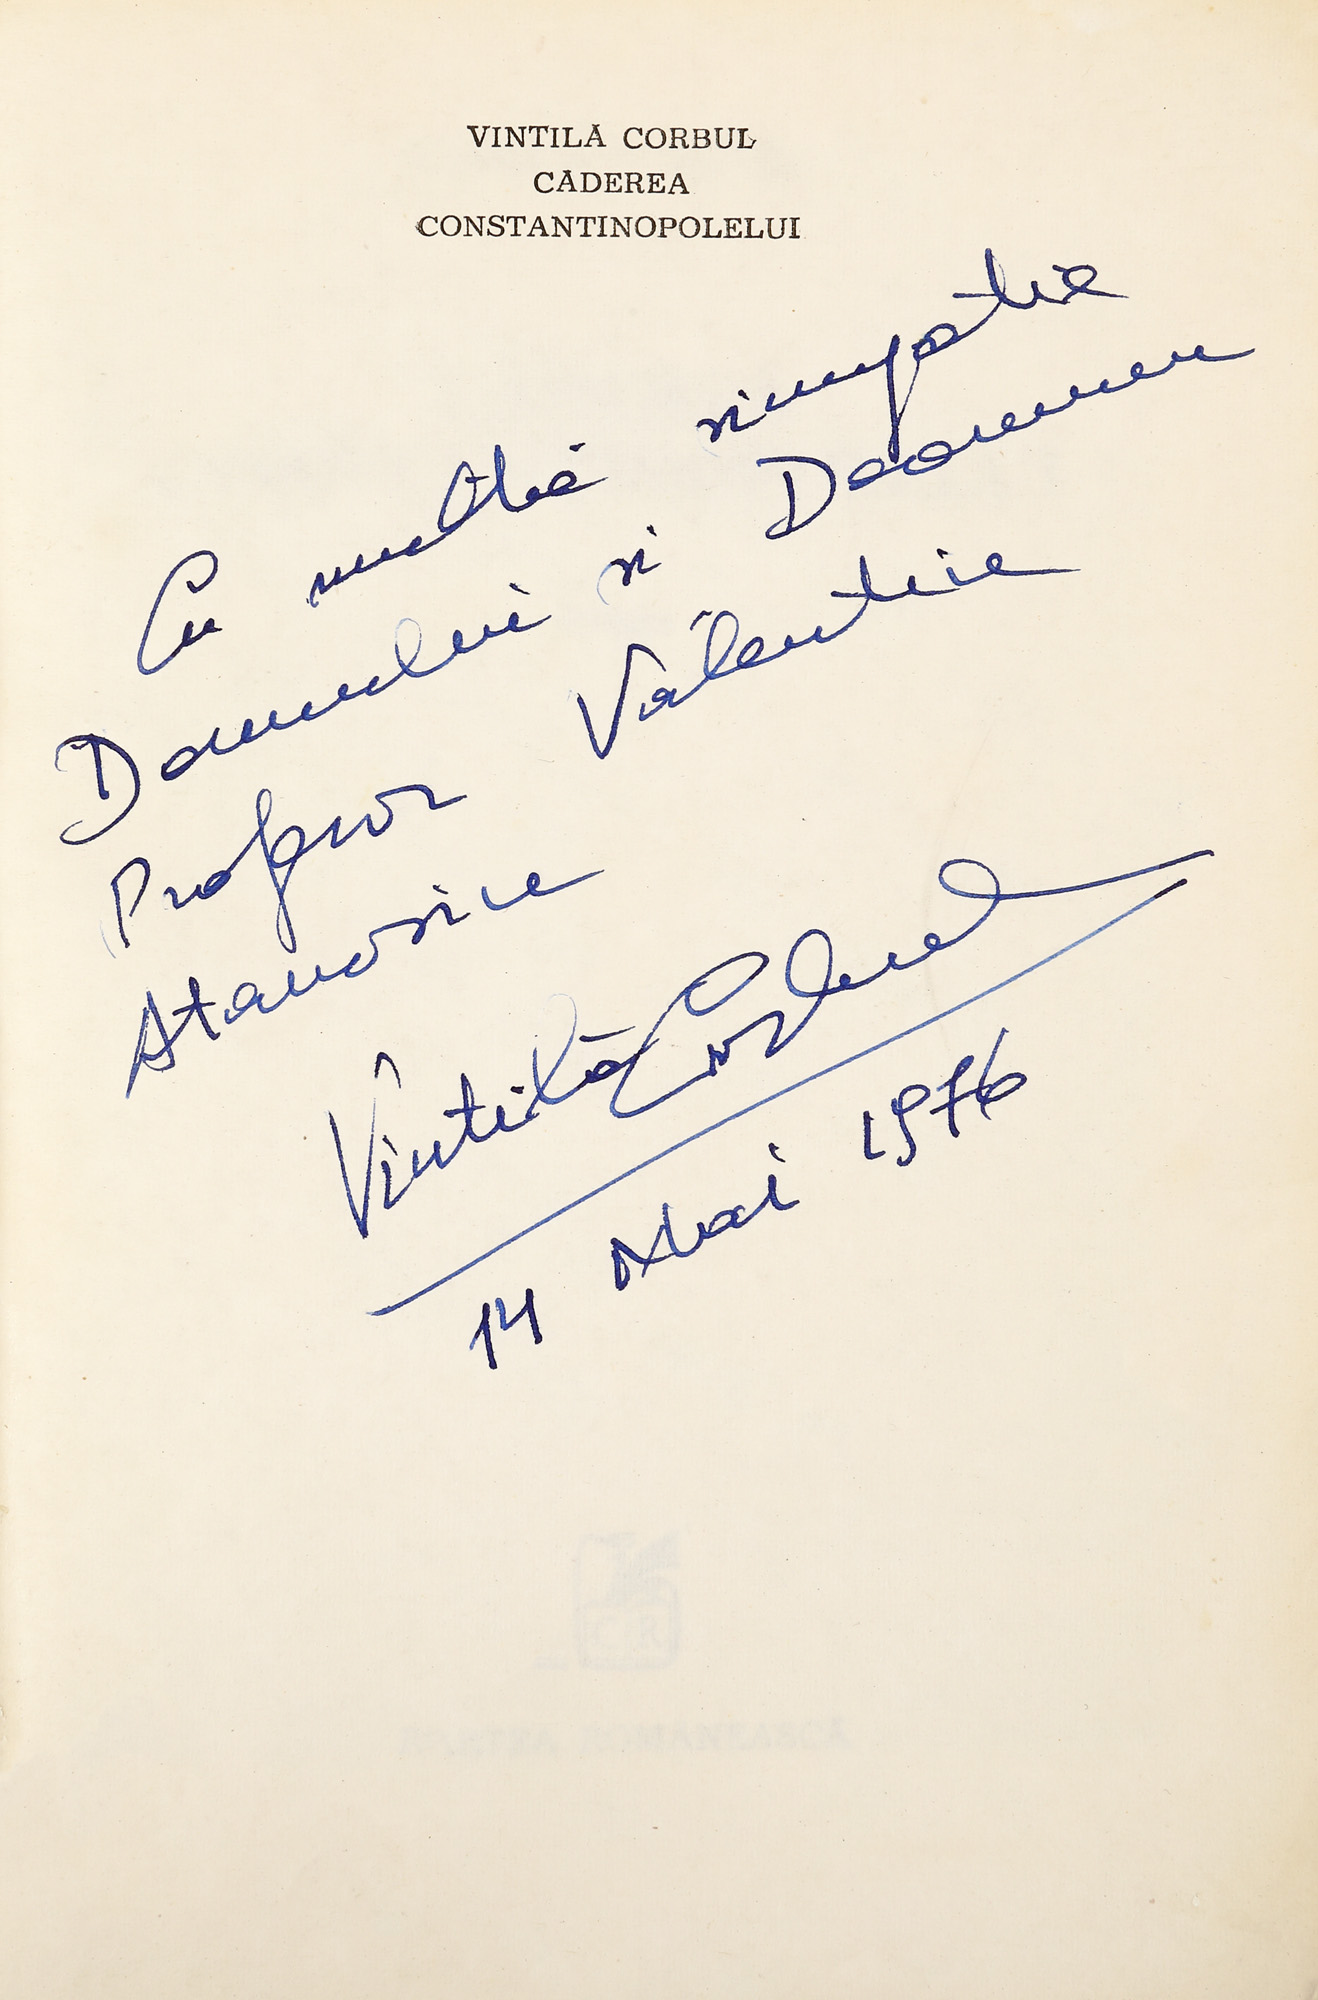 VINTILĂ CORBUL
CĂDEREA
CONSTANTINOPOLELUI
Cu multă simpatie
Domnului si Doamnei
Profesor Valentin
Stanosice
Vintilă Corbul
14 Mai 1976
CR
CARTEA ROMÂNEASCĂ